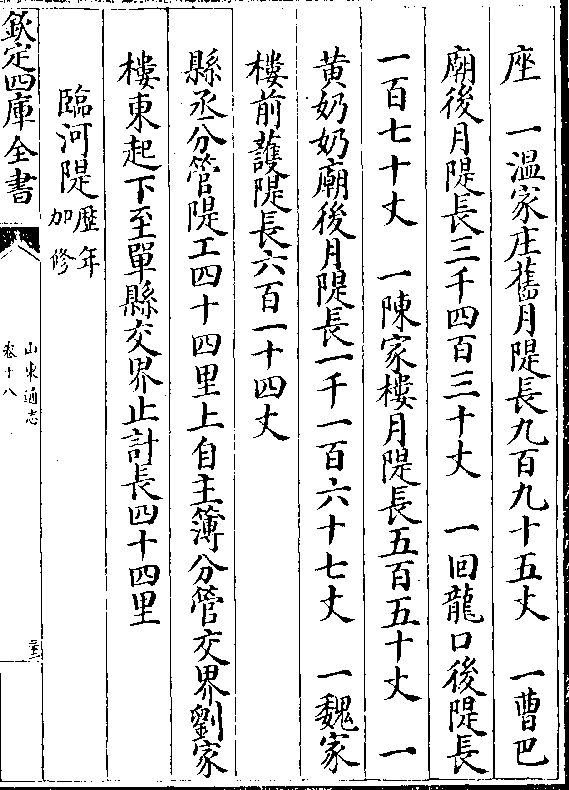 座　一溫家庄舊月隄長九百九十五丈　一曹巴
廟後月隄長三千四百三十丈　一回龍口後隄長
一百七十丈　一陳家樓月隄長五百五十丈　一
黄奶奶廟後月隄長一千一百六十七丈　一魏家
樓前護隄長六百一十四丈
縣丞分管隄工四十四里上自主簿分管交界劉家
樓東起下至單縣交界止計長四十四里
臨河隄歴年
加修
欽定四庫全書
山東通志
卷十八